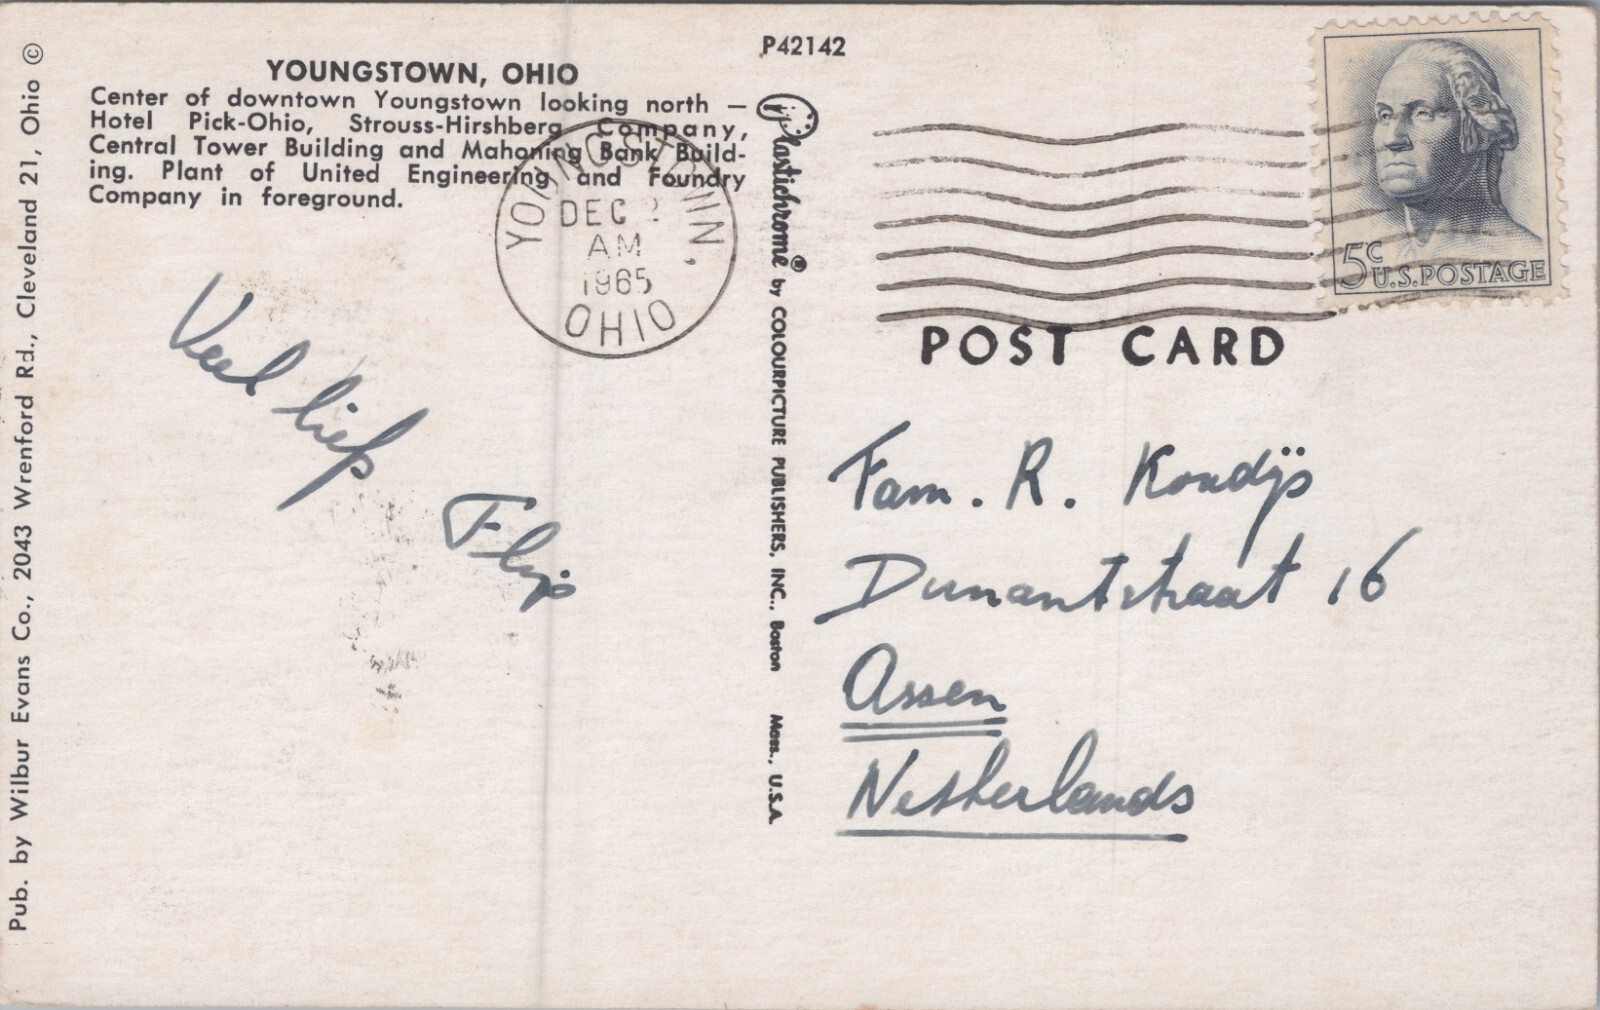 P42142
YOUNGSTOWN, OHIO
Center of downtown Youngstown looking north —
Hotel Pick-Ohio, Strouss-Hirshberg Company,
Central Tower Building and Mahoning Bank Build-
ing. Plant of United Engineering and Foundry
Company in foreground.
Pub. by Wilbur Evans Co., 2043 Wrenford Rd., Cleveland 21, Ohio ©
YOUNGSTOWN,
DEC 2
AM
1965
OHIO
Plastichrome® by COLOURPICTURE PUBLISHERS, INC., Boston Mass., U.S.A.
5c
U.S. POSTAGE
POST CARD
Veel liefs
Flip
Fam. R. Kondijs
Dunantstraat 16
Assen
Netherlands